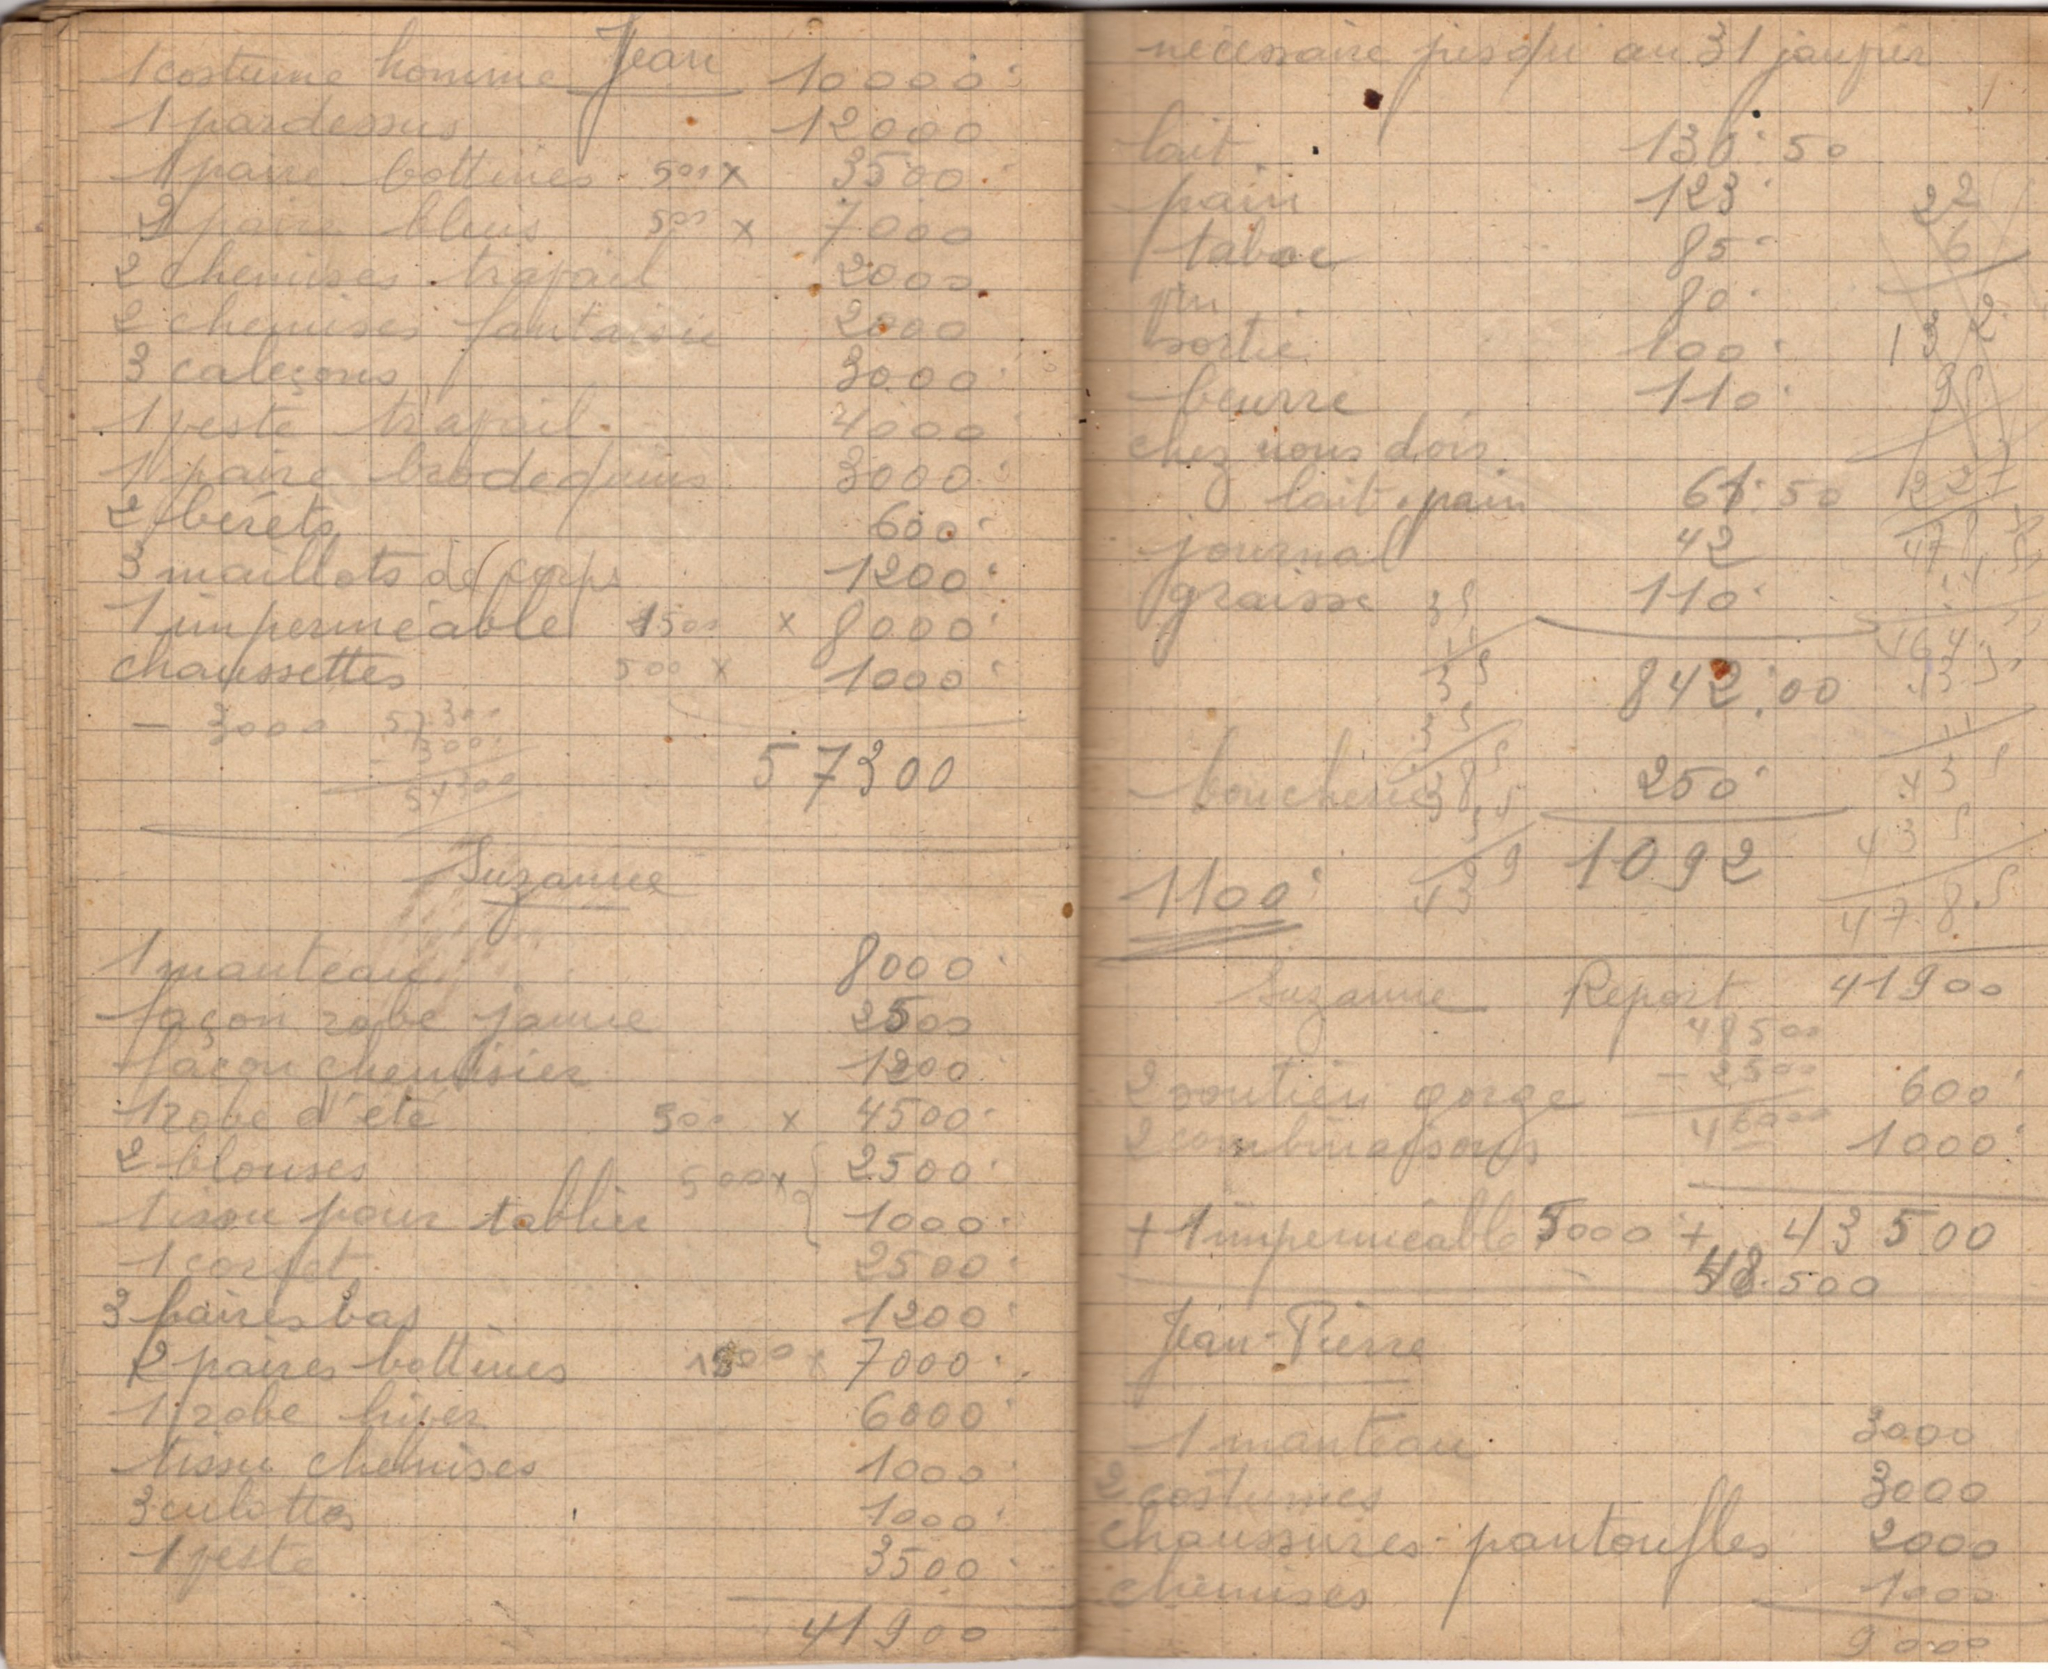 Jean
1 costume homme 10000
1 pardessus 12000
1 paire bottines 500 x 3500
2 paires bleus 500 x 7000
2 chemises travail 2000
2 chemises fantaisie 2000
3 caleçons 3000
1 veste travail 4000
1 paire brodequins 3000
2 bérets 600
3 maillots de corps 1200
1 imperméable 1500 x 8000
chaussettes 500 x 1000
- 3000 57300
- 3000
54300
57300
Suzanne
1 manteau 8000
façon robe jaune 2500
façon chemisier 1200
1 robe d'été 500 x 4500
2 blouses 500 x 2500
tissu pour tablier 1000
1 corset 2500
3 paires bas 1200
2 paires bottines 1500 x 7000
1 robe hiver 6000
tissu chemises 1000
3 culottes 1000
1 veste 3500
41900
nécessaire jusqu'au 31 janvier
lait 130.50
pain 123
tabac 85
vin 80
sortie 100
beurre 110
chez nous dois
lait. pain 61.50
journal 42
graisse 110
842.00
boucherie 250
1092
1100
22
6
132
95
227
Suzanne Report 41900
48500
- 2500
46000
2 soutien gorge 600
2 combinaisons 1000
+ 1 imperméable 5000 + 43500
48.500
Jean-Pierre
1 manteau 3000
2 costumes 3000
chaussures - pantoufles 2000
chemises 1000
9000